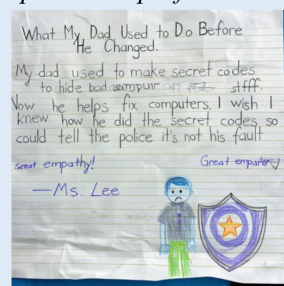 What My Dad Used to Do Before
He Changed.
My dad used to make secret codes
to hide bad stfff.
Now he helps fix computers. I wish I
knew how he did the secret codes so
could tell the police it's not his fault
Great empathy!
Great
—Ms. Lee